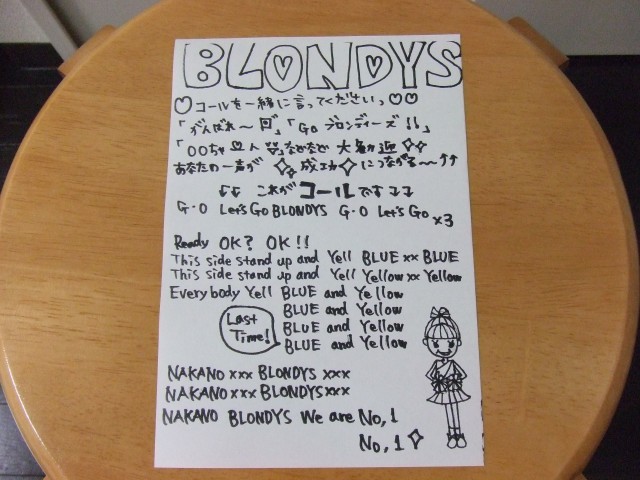 BLONDYS
♡コールを一緒に言ってくださいっ♡♡
「がんばれ〜」「Go ブロンディーズ!!」
「○○ちゃ〜ん」などなど 大歓迎
あなたの一声が 成功 につながる〜↑↑
これが コール です
G-O Let's Go BLONDYS G-O Let's Go ×3
Ready OK? OK!!
This side stand up and Yell BLUE ×× BLUE
This side stand up and Yell Yellow ×× Yellow
Everybody Yell BLUE and Yellow
BLUE and Yellow
Last Time!
BLUE and Yellow
BLUE and Yellow
NAKANO ××× BLONDYS ×××
NAKANO ××× BLONDYS ×××
NAKANO BLONDYS We are No,1
No,1